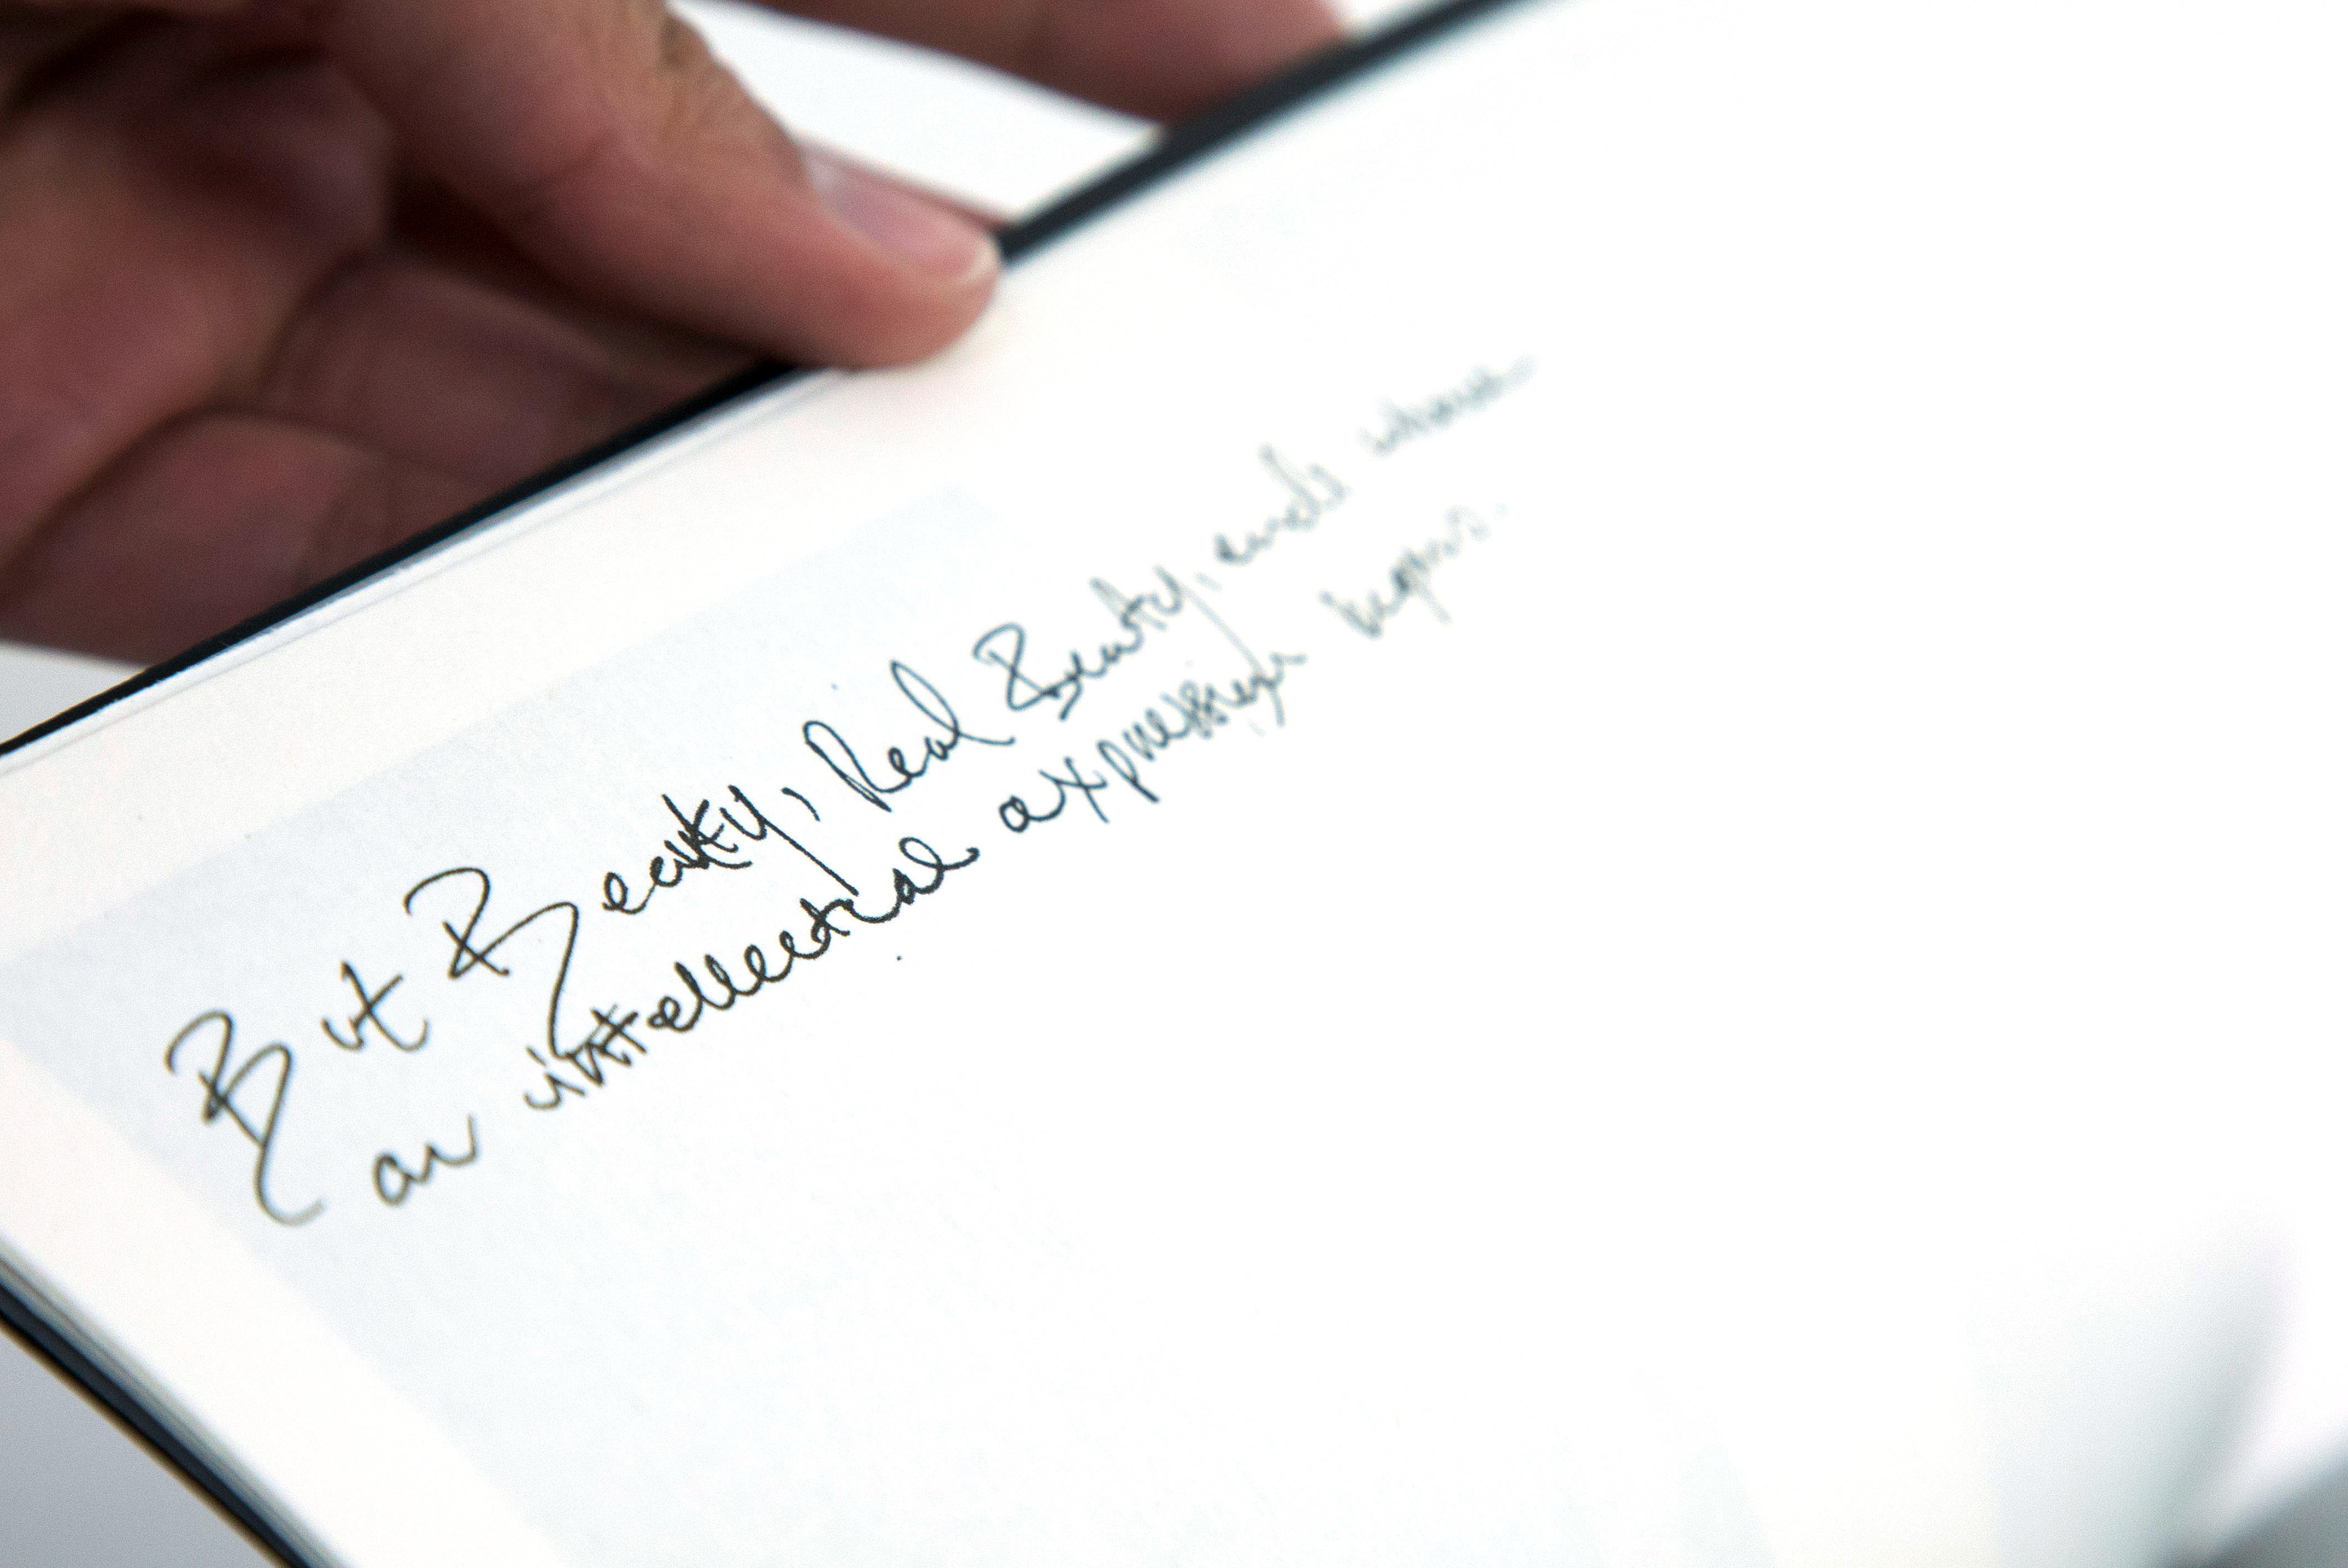 But Beauty, Real Beauty, ends where
an intellectual expression begins.